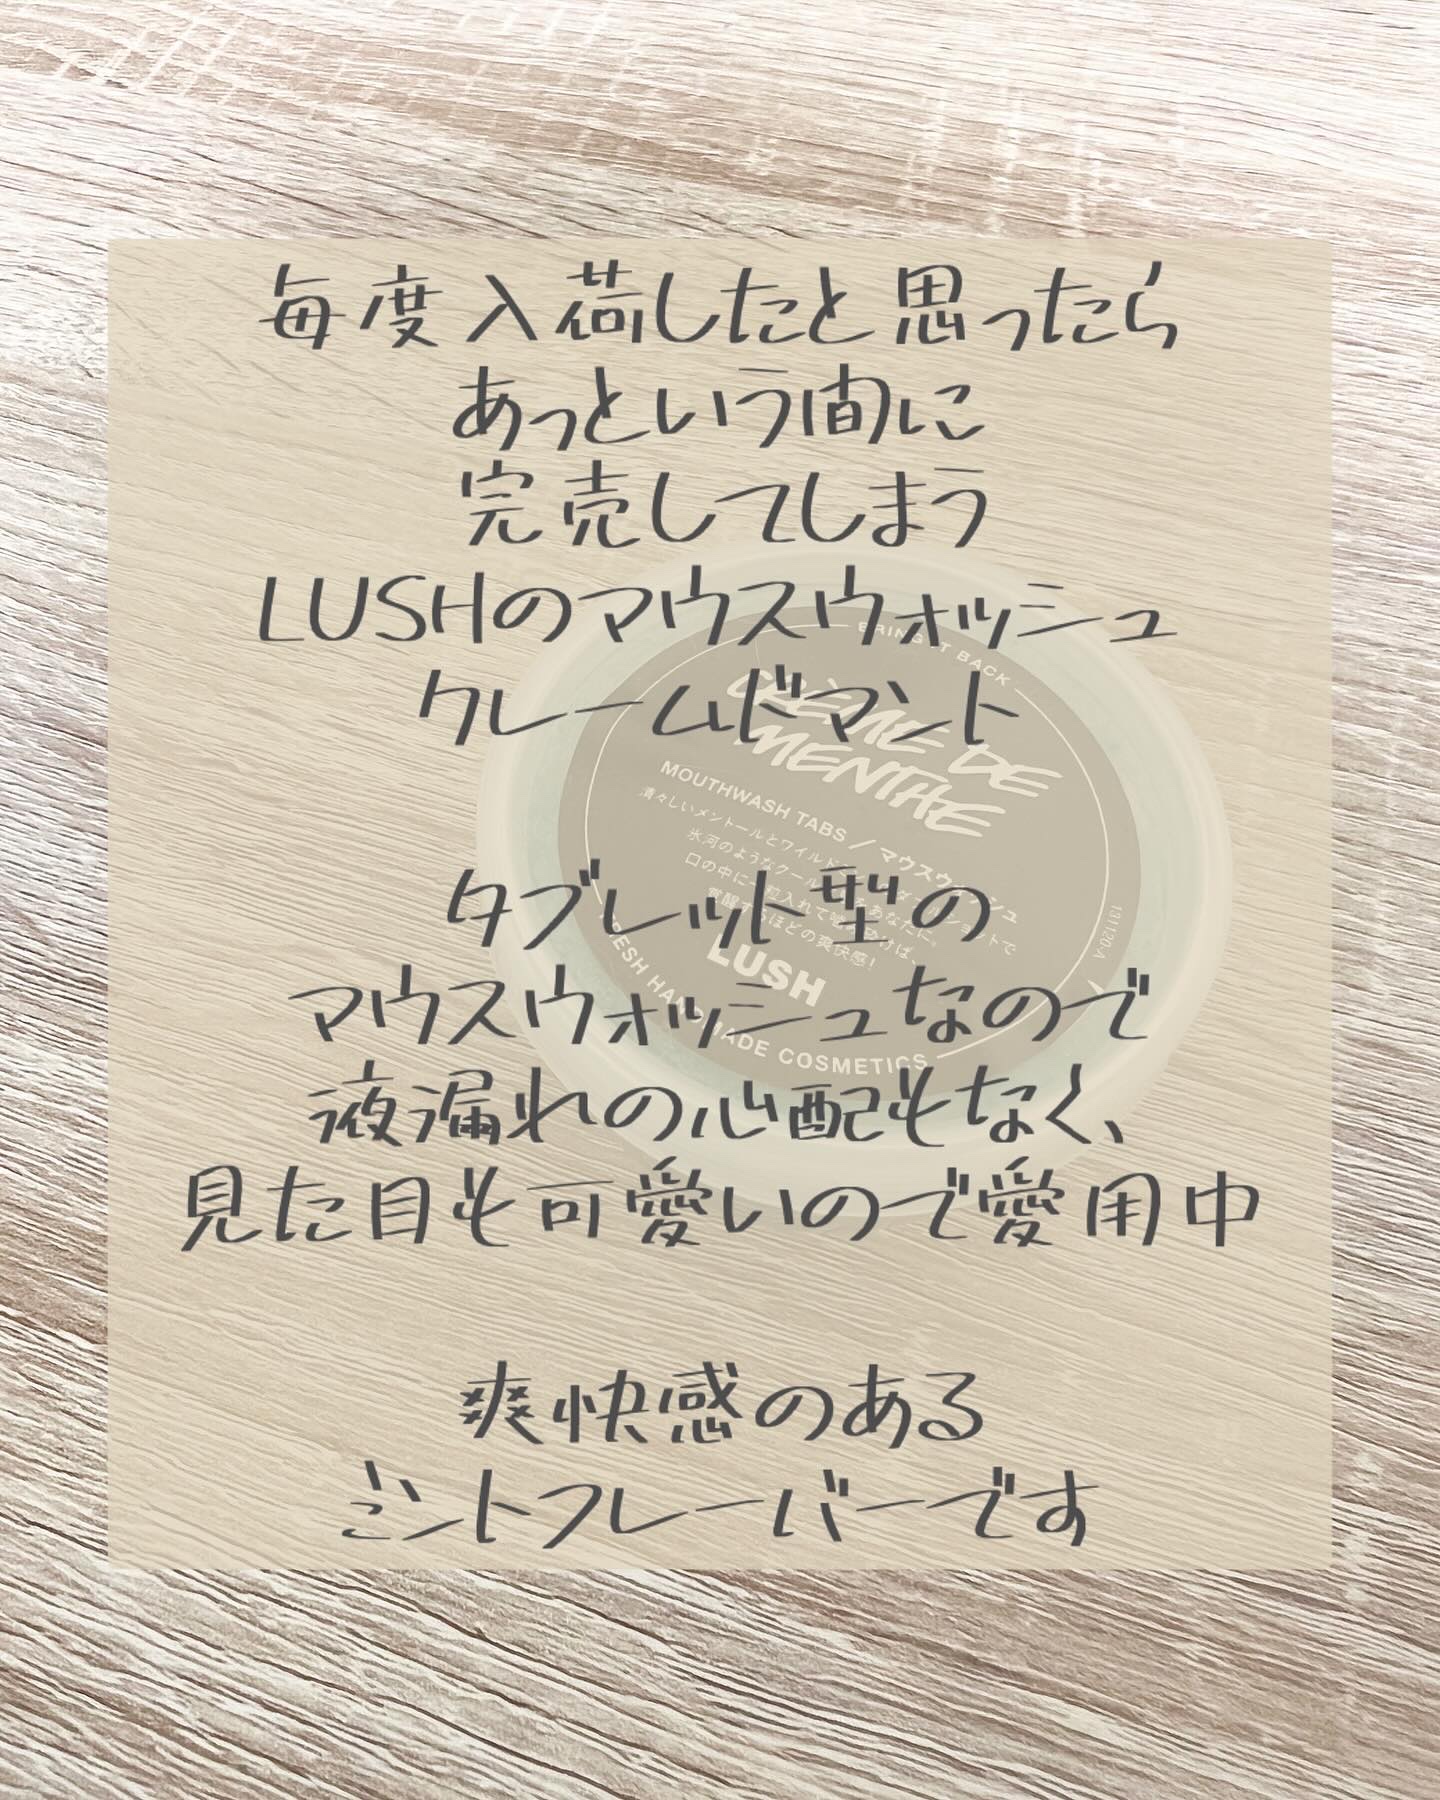 毎度入荷したと思ったら
あっという間に
完売してしまう
LUSHのマウスウォッシュ
クレームドマント
タブレット型の
マウスウォッシュなので
液漏れの心配もなく、
見た目も可愛いので愛用中
爽快感のある
ミントフレーバーです
BRING IT BACK
CRÈME DE
MENTHE
MOUTHWASH TABS / マウスウォッシュ
清々しいメントールとワイルド
氷河のようなクール
をあなたに。
口の中に一粒入れて
覚醒するほどの爽快感!
LUSH
FRESH HANDMADE COSMETICS